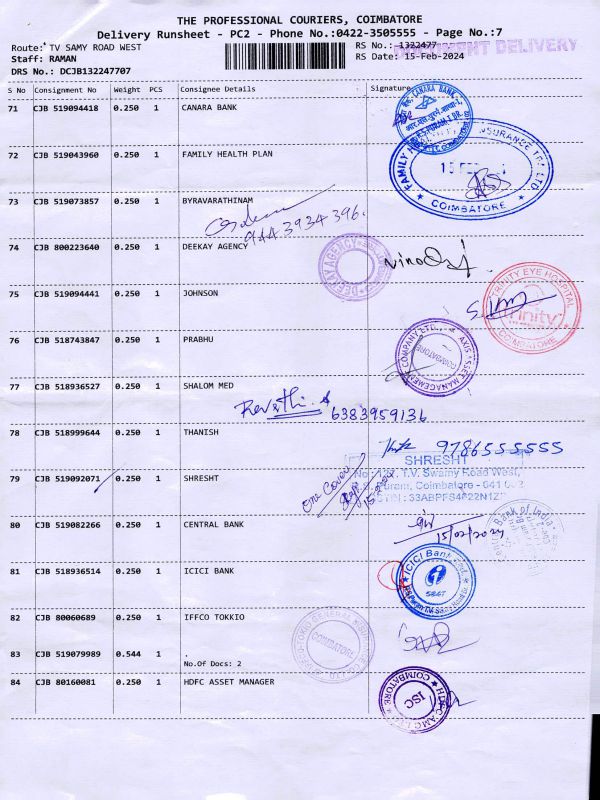 THE PROFESSIONAL COURIERS, COIMBATORE
Delivery Runsheet - PC2 - Phone No.:0422-3505555 - Page No.:7
Route: TV SAMY ROAD WEST
RS No.: 1322477
DOCUMENT DELIVERY
Staff: RAMAN
RS Date: 15-Feb-2024
DRS No.: DCJB132247707
S No Consignment No Weight PCS Consignee Details Signature
71 CJB 519094418 0.250 1 CANARA BANK
CANARA BANK
72 CJB 519043960 0.250 1 FAMILY HEALTH PLAN
FAMILY INSURANCE LTD
15 FEB
COIMBATORE
73 CJB 519073857 0.250 1 BYRAVARATHINAM
9443934396.
74 CJB 800223640 0.250 1 DEEKAY AGENCY
DEEKAY AGENCY
75 CJB 519094441 0.250 1 JOHNSON
TRINITY EYE HOSPITAL
Trinity
COIMBATORE
76 CJB 518743847 0.250 1 PRABHU
AXIS ASSET MANAGEMENT COMPANY LTD.,
COIMBATORE
77 CJB 518936527 0.250 1 SHALOM MED
Revathi 6383959136
78 CJB 518999644 0.250 1 THANISH
9786555555
79 CJB 519092071 0.250 1 SHRESHT
One Cover
SHRESHT
T.V. Swamy Road West,
Puram, Coimbatore - 641 002
80 CJB 519082266 0.250 1 CENTRAL BANK
15/02/2024
Bank of India
81 CJB 518936514 0.250 1 ICICI BANK
ICICI Bank Ltd.
82 CJB 80060689 0.250 1 IFFCO TOKKIO
COIMBATORE
83 CJB 519079989 0.544 1 .
No.Of Docs: 2
84 CJB 80160081 0.250 1 HDFC ASSET MANAGER
COIMBATORE
ISC
HDFC AMC LTD